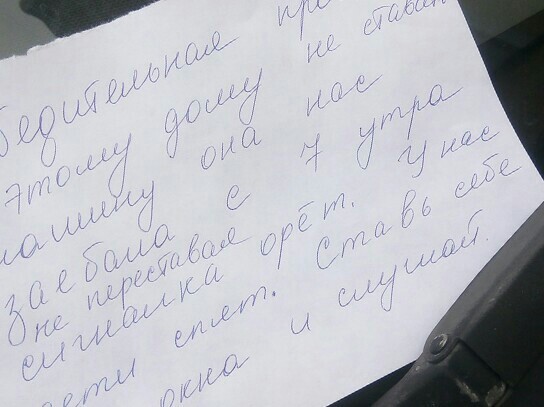 бедительная пр
этому дому не ставит
машину она нас
заебала с 7 утра
не переставая
сигналка орёт. У нас
дети спят. Ставь себе
окна и слушай.